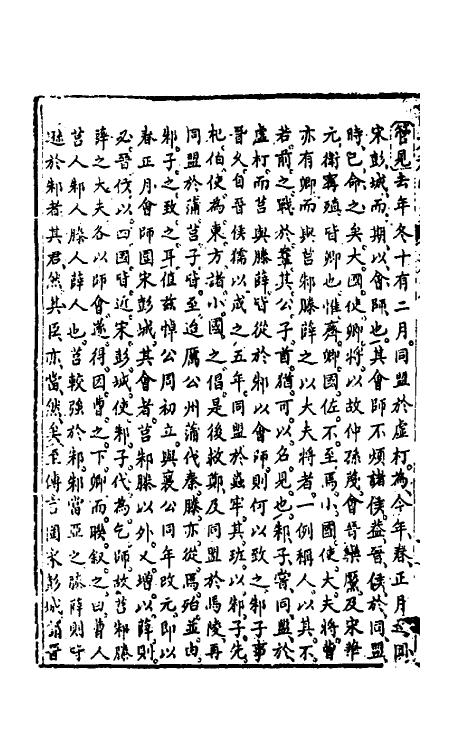 啓見去年冬十有二月同盟於虛朾為今年春正月之圍
宋彭城而期以會師也其會師不煩諸侯益晉侯於同盟
時已命之矣大國使卿將以故仲孫蔑會晉欒黶及宋華
元衛甯殖皆卿也惟齊卿國佐不至焉小國使大夫將曹
亦有卿而與莒邾滕薛之以大夫將者一例稱人以其不
若前之戰於鞌其公子首猶可以名見也邾子嘗同盟於
虛朾而莒與滕薛皆從於邾以會師則何以致之邾子事
晉久自晉侯孺以成之五年同盟於蟲牢其班以邾子先
杞伯使為東方諸小國之倡是後救鄭及同盟於馬陵再
同盟於蒲莒子皆至迨厲公州蒲代秦滕亦從焉殆並由
邾子之致之耳值茲悼公周初立與襄公同年改元即以
春正月會師圍宋彭城其會者莒邾滕以外又增以薛則
及晉伐以四國皆近宋彭城使邾子代為乞師故莒邾滕
薛之大夫各以師會遂得因曹之下卿而聯叙之曰曹人
莒人邾人滕人薛人也莒較強於邾邾當亞之滕薛則呼
於邾者其君然其臣亦當然矣至傳言圍宋彭城謂晉